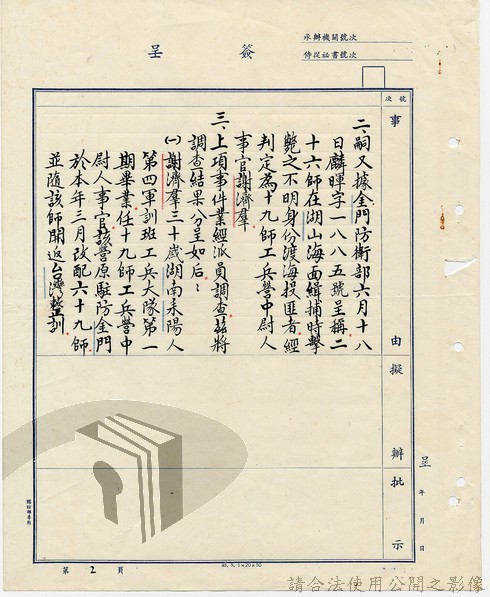 承辦機關號次
侍從祕書號次
簽呈
號次
事由
擬辦
批示
呈 年 月 日
二、嗣又據金門防衛部六月十八
日麟暉字一八八五號呈稱二
十六師在湖山海面緝捕時擊
斃之不明身份渡海投匪者經
判定為十九師工兵營中尉人
事官謝濟羣。
三、上項事件業經派員調查茲將
調查結果分呈如后:
㈠謝濟羣三十歲湖南耒陽人
第四軍訓班工兵大隊第一
期畢業任十九師工兵營中
尉人事官該營原駐防金門
於本年三月改配六十九師
並隨該師開返台灣整訓。
第2頁
請合法使用公開之影像